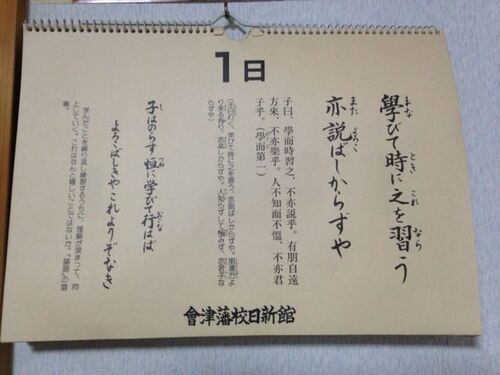 1日
學びて時に之を習う
亦説ばしからずや
子曰、學而時習之、不亦説乎。有朋自遠
方來、不亦樂乎。人不知而不慍、不亦君
子乎。(學而第一)
(子曰わく、学びて時に之を習う、亦説ばしからずや。朋遠方よ
り来る有り、亦楽しからずや。人知らずして慍みず、亦君子な
らずや)
子はのらす 恒に学びて行はば
よろこばしきやこれよりぞなき
学んだことを繰り返し練習するうちに、理解が深まって、向
上していく。これはなんと嬉しいことではないか。『論語』の首
章。
會津藩校日新館